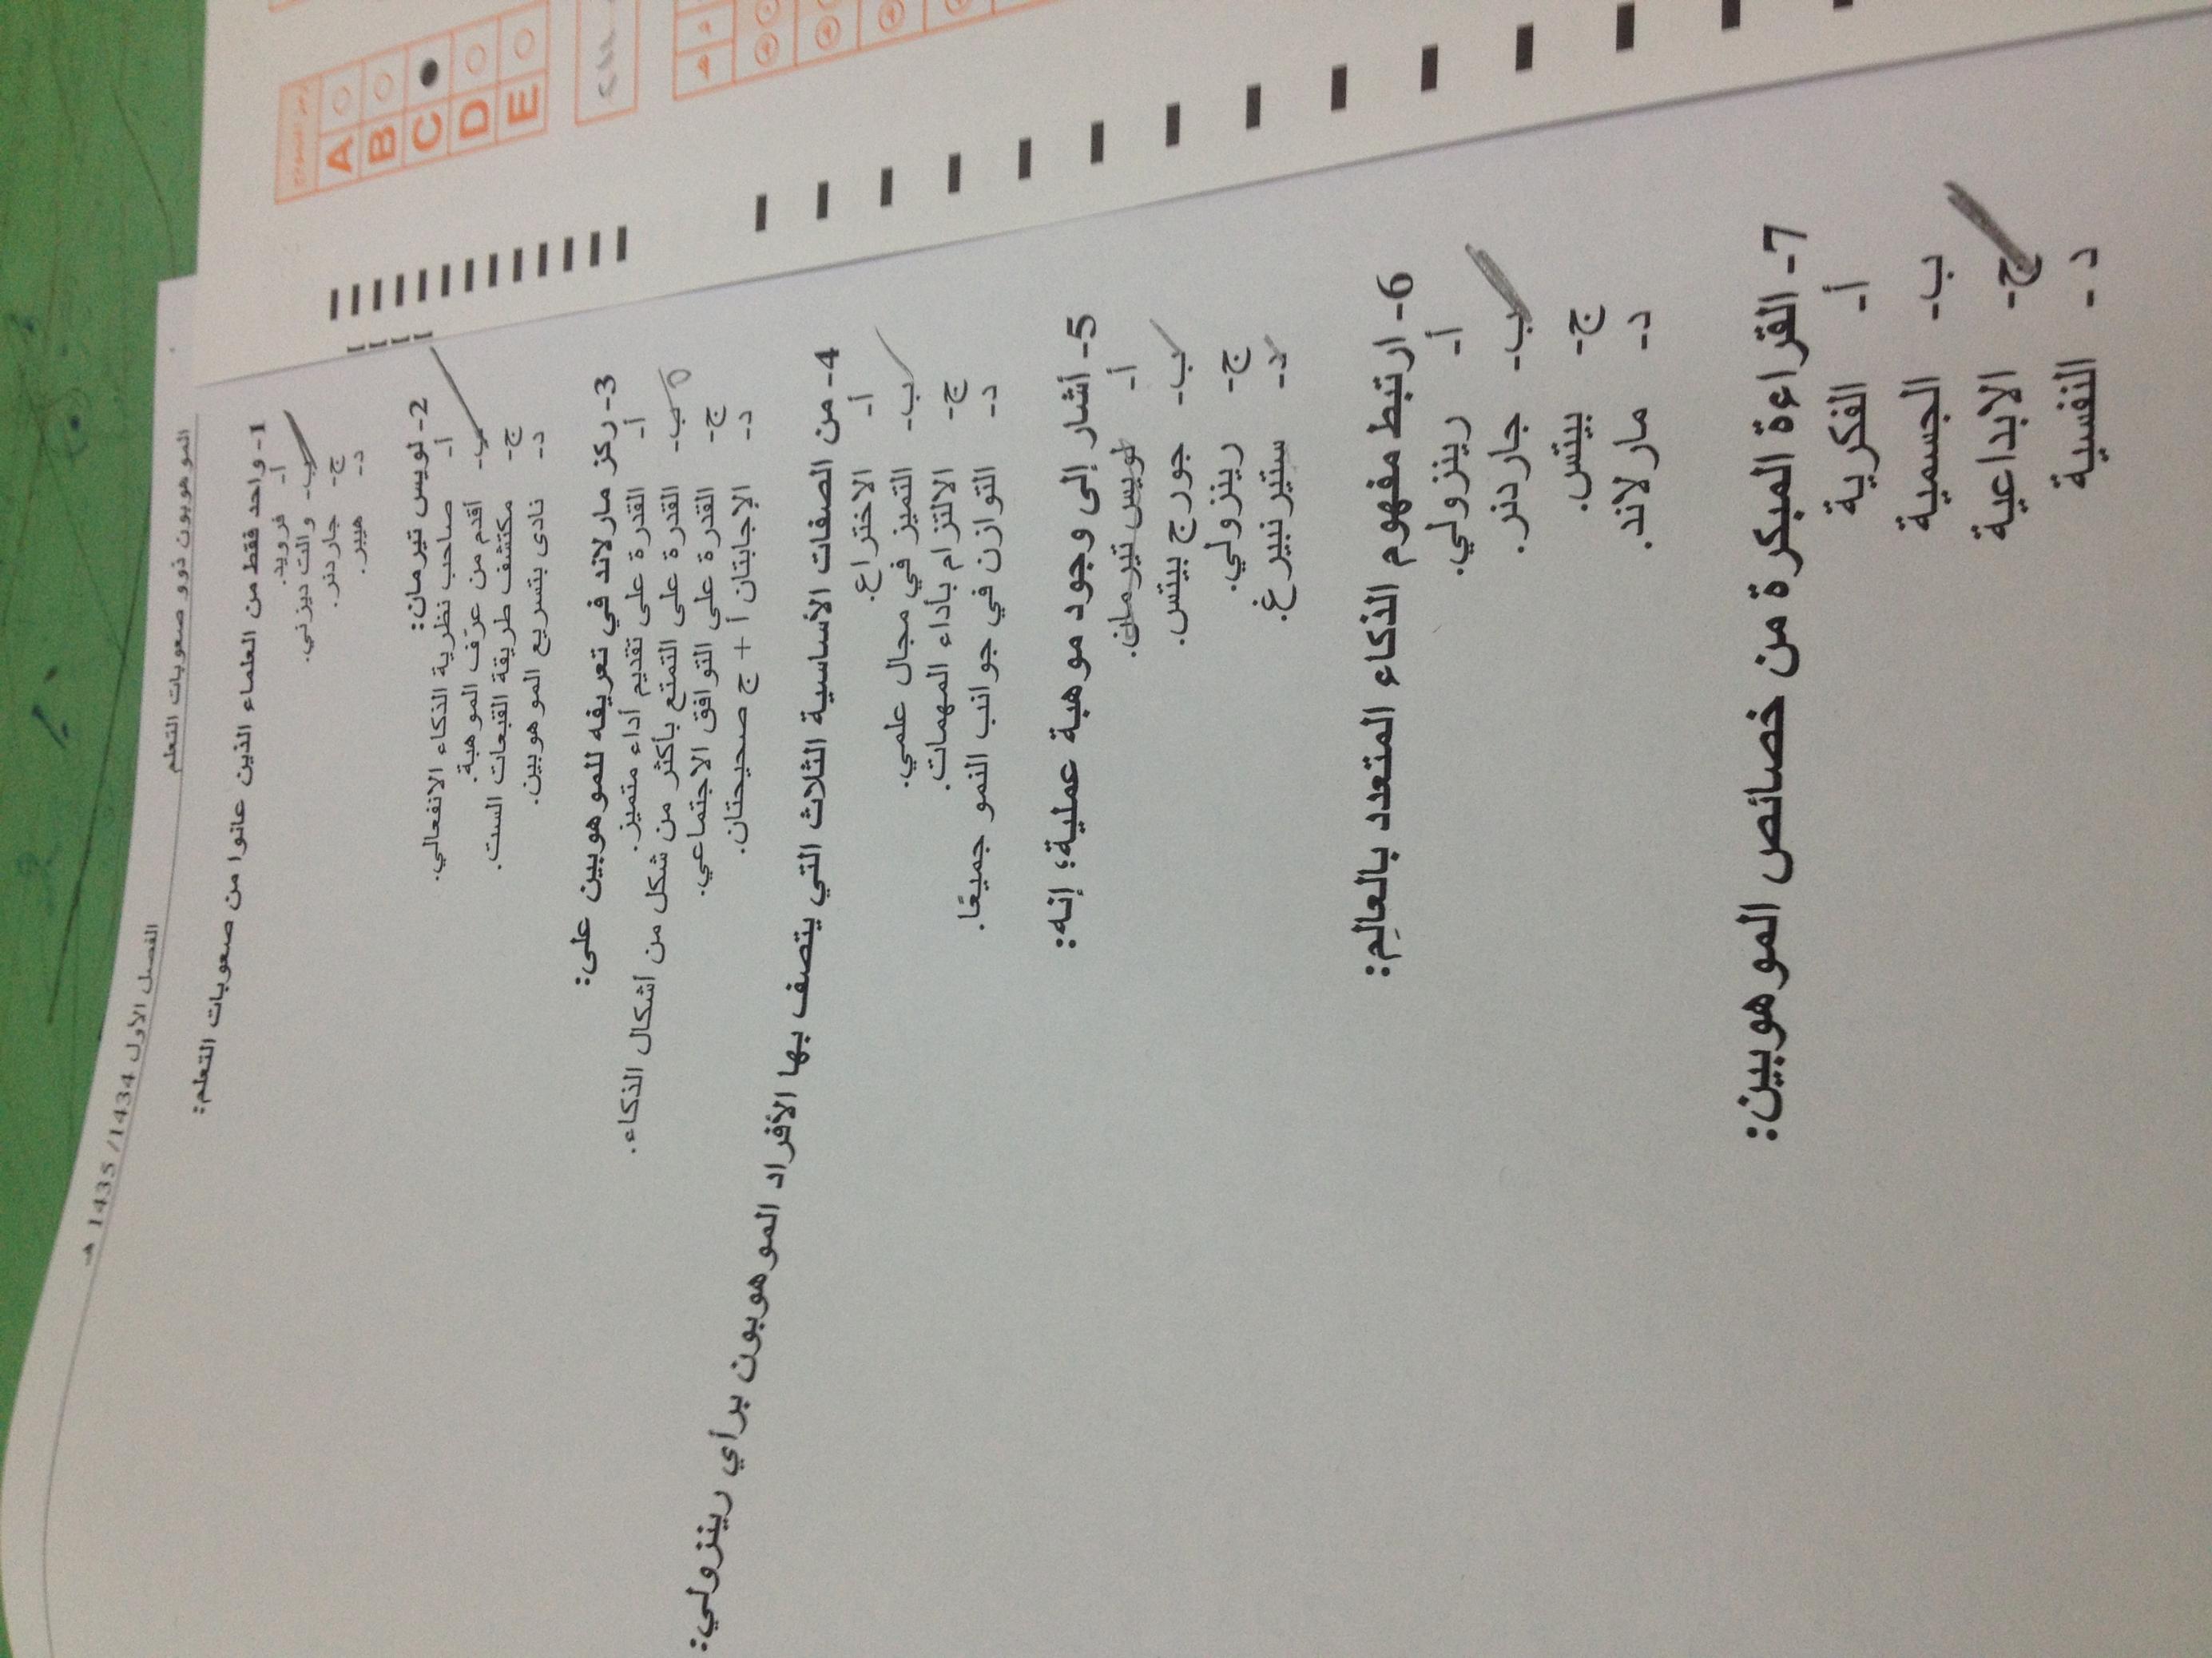 الموهوبون ذوو صعوبات التعلم
الفصل الأول 1434/ 1435 هـ
1- واحد فقط من العلماء الذين عانوا من صعوبات التعلم:
أ- فرويد.
ب- والت ديزني.
ج- جاردنر.
د- هيبر.
2- لويس تيرمان:
أ- صاحب نظرية الذكاء الانفعالي.
ب- أقدم من عرّف الموهبة.
ج- مكتشف طريقة القبعات الست.
د- نادى بتسريع الموهوبين.
3- ركز مارلاند في تعريفه للموهوبين على:
أ- القدرة على تقديم أداء متميز.
ب- القدرة على التمتع بأكثر من شكل من أشكال الذكاء.
ج- القدرة على التوافق الاجتماعي.
د- الإجابتان أ + ج صحيحتان.
4- من الصفات الأساسية الثلاث التي يتصف بها الأفراد الموهوبون برأي رينزولي:
أ- الاختراع.
ب- التميز في مجال علمي.
ج- الالتزام بأداء المهمات.
د- التوازن في جوانب النمو جميعًا.
5- أشار إلى وجود موهبة عملية؛ إنه:
أ- لويس تيرمان.
ب- جورج بيتس.
ج- رينزولي.
د- ستيرنبيرغ.
6- ارتبط مفهوم الذكاء المتعدد بالعالِم:
أ- رينزولي.
ب- جاردنر.
ج- بيتس.
د- مارلاند.
7- القراءة المبكرة من خصائص الموهوبين:
أ- الفكرية
ب- الجسمية
ج- الابداعية
د- النفسية
A
B
C
D
E